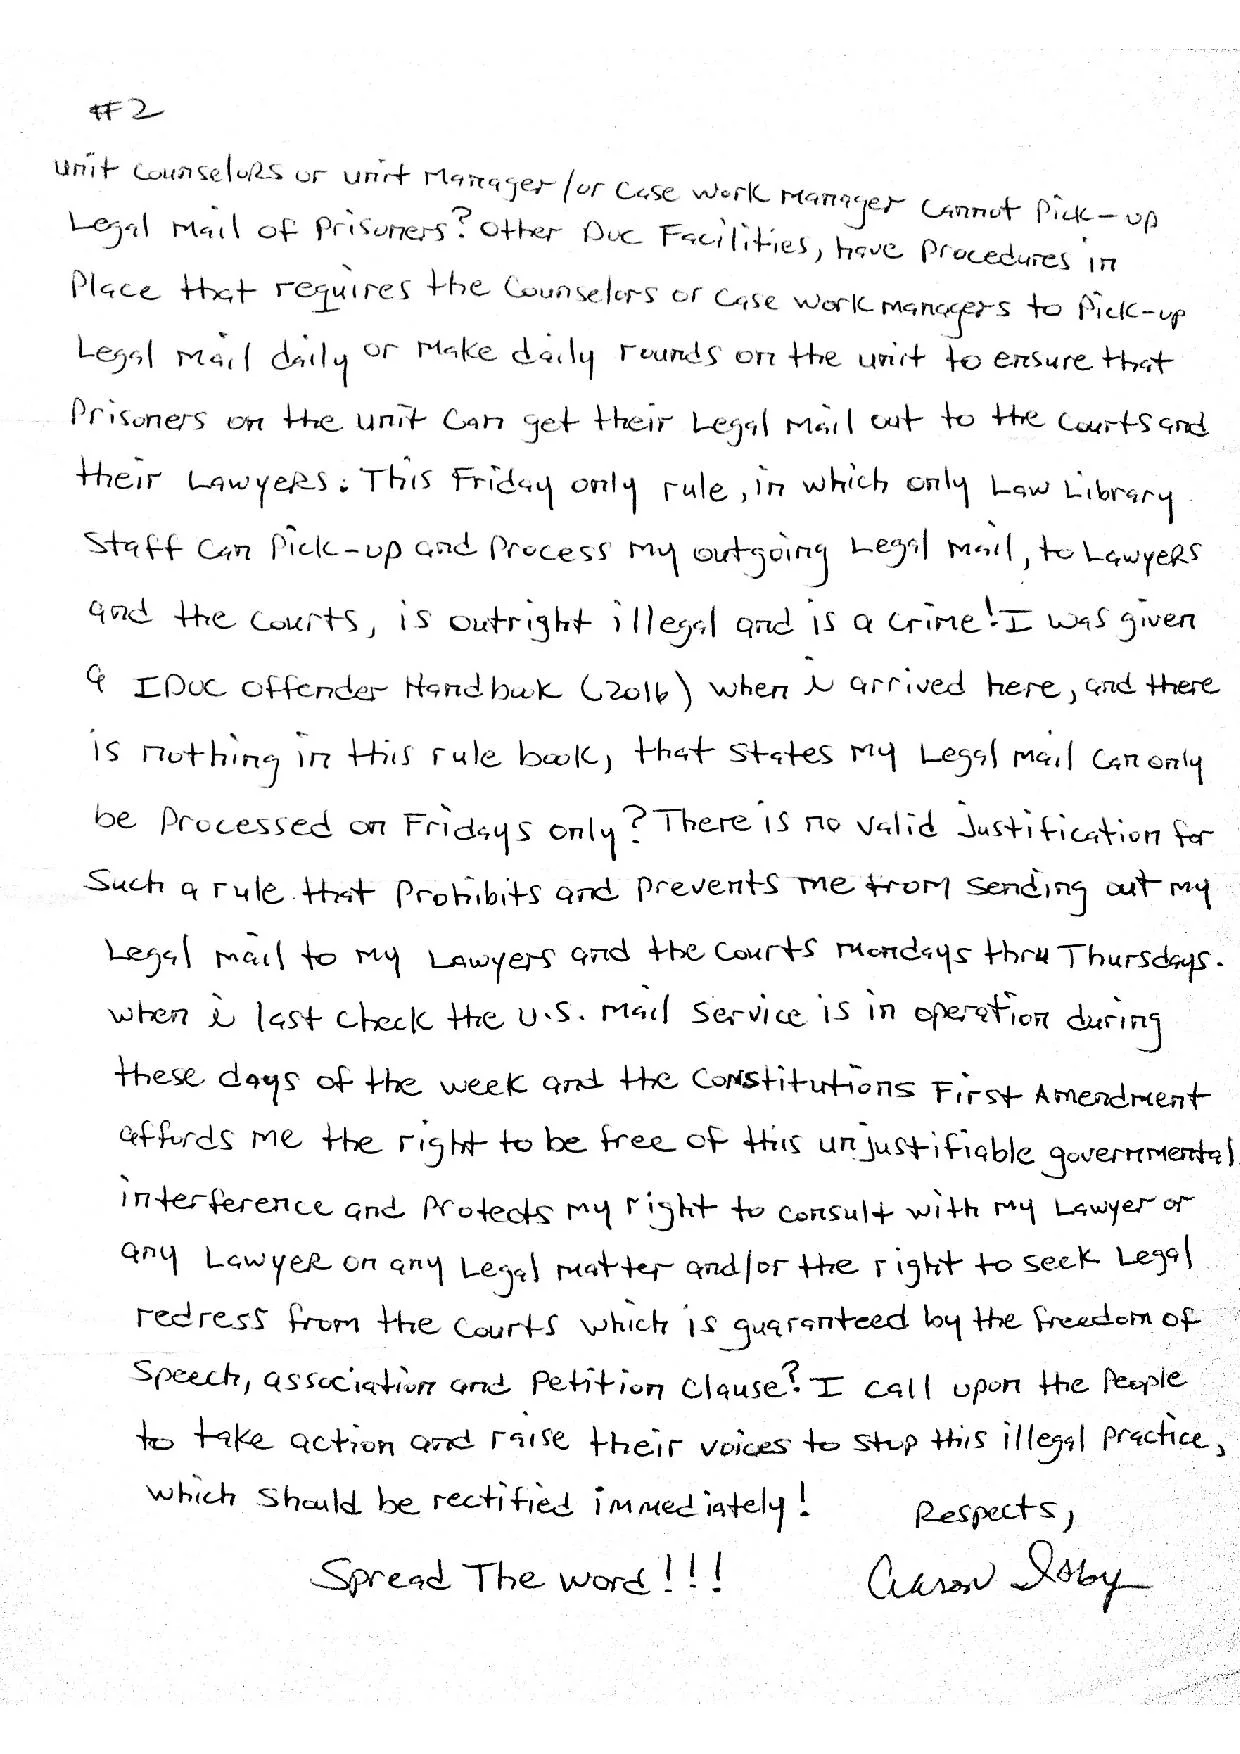 #2
unit counselors or unit Manager/or case work manager cannot pick-up
Legal Mail of Prisoners? Other Doc Facilities, have procedures in
Place that requires the counselors or case work managers to pick-up
Legal Mail daily or make daily rounds on the unit to ensure that
Prisoners on the unit can get their Legal Mail out to the courts and
their Lawyers. This Friday only rule, in which only Law Library
Staff can pick-up and process my outgoing Legal Mail, to Lawyers
and the courts, is outright illegal and is a crime! I was given
a IDOC Offender Handbook (2016) when i arrived here, and there
is nothing in this rule book, that states my Legal Mail can only
be processed on Fridays only? There is no valid justification for
such a rule that prohibits and prevents me from sending out my
Legal Mail to my Lawyers and the courts Mondays thru Thursdays.
when i last check the U.S. Mail service is in operation during
these days of the week and the Constitutions First Amendment
affords me the right to be free of this unjustifiable governmental
interference and protects my right to consult with my Lawyer or
any Lawyer on any Legal matter and/or the right to seek Legal
redress from the courts which is guaranteed by the freedom of
speech, association and petition clause? I call upon the people
to take action and raise their voices to stop this illegal practice,
which should be rectified immediately!
Respects,
Spread The word!!!
Aaron Isby